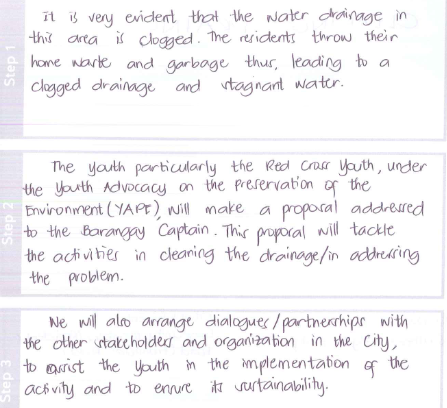 Step 1
it is very evident that the water drainage in
this area is clogged. The residents throw their
home waste and garbage thus, leading to a
clogged drainage and stagnant water.
Step 2
The youth particularly the Red Cross Youth, under
the Youth Advocacy on the Preservation of the
Environment (YAPE) will make a proposal addressed
to the Barangay Captain. This proposal will tackle
the activities in cleaning the drainage/in addressing
the problem.
Step 3
We will also arrange dialogues/partnerships with
the other stakeholders and organization in the City,
to assist the youth in the implementation of the
activity and to ensure its sustainability.